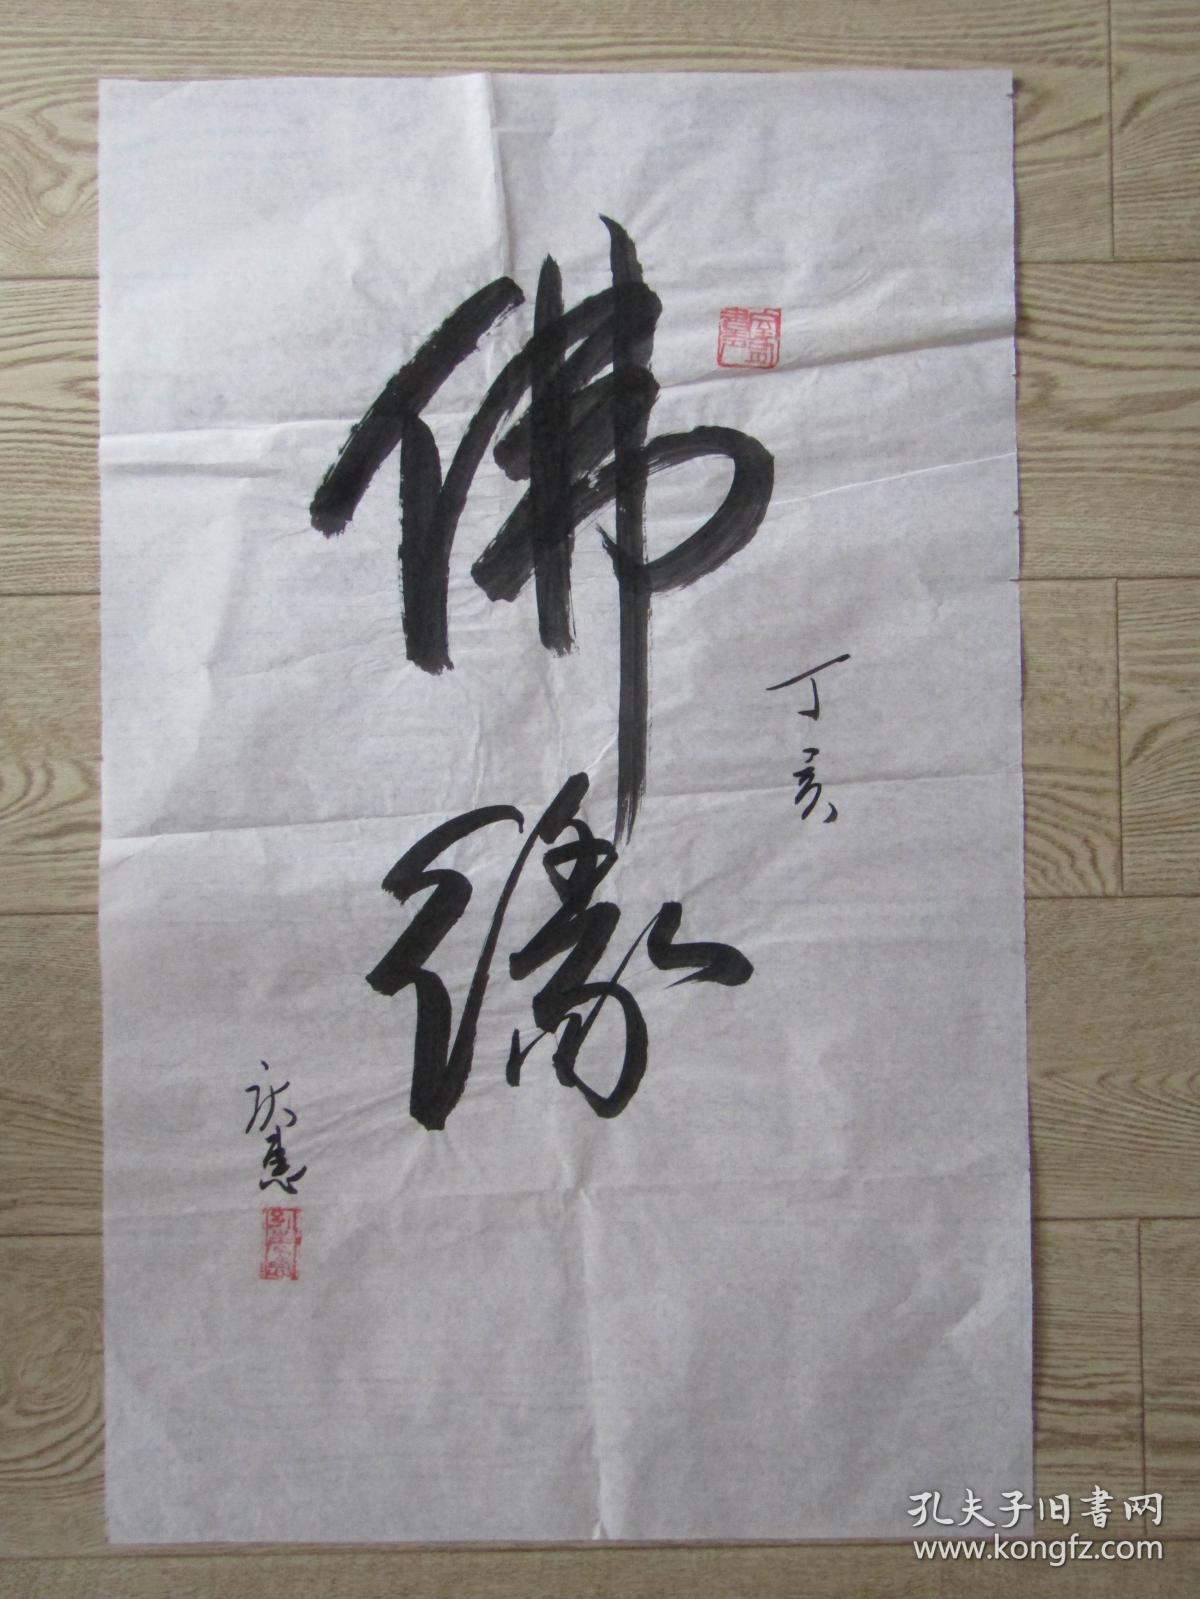 佛緣
丁亥
庆惠
孔夫子旧書网
www.kongfz.com